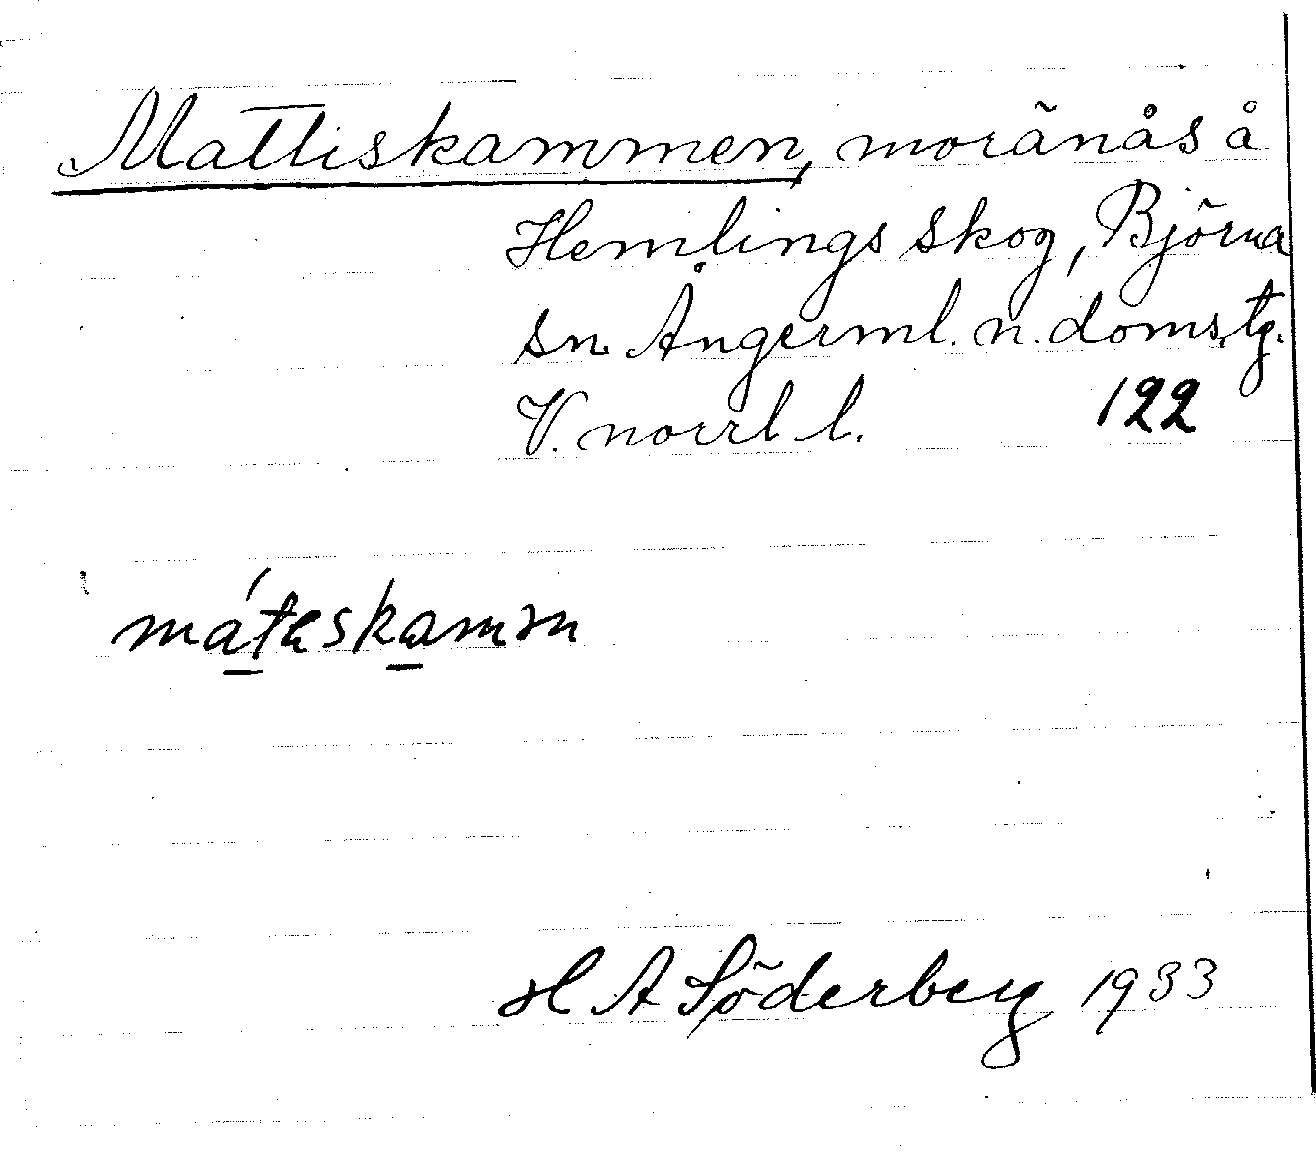 Mattiskammen, moränås å
Hemlings skog, Björna
sn. Ångerml. n. doms.tg.
V. norrl l. 122
máteskamm
H A Söderberg 1933